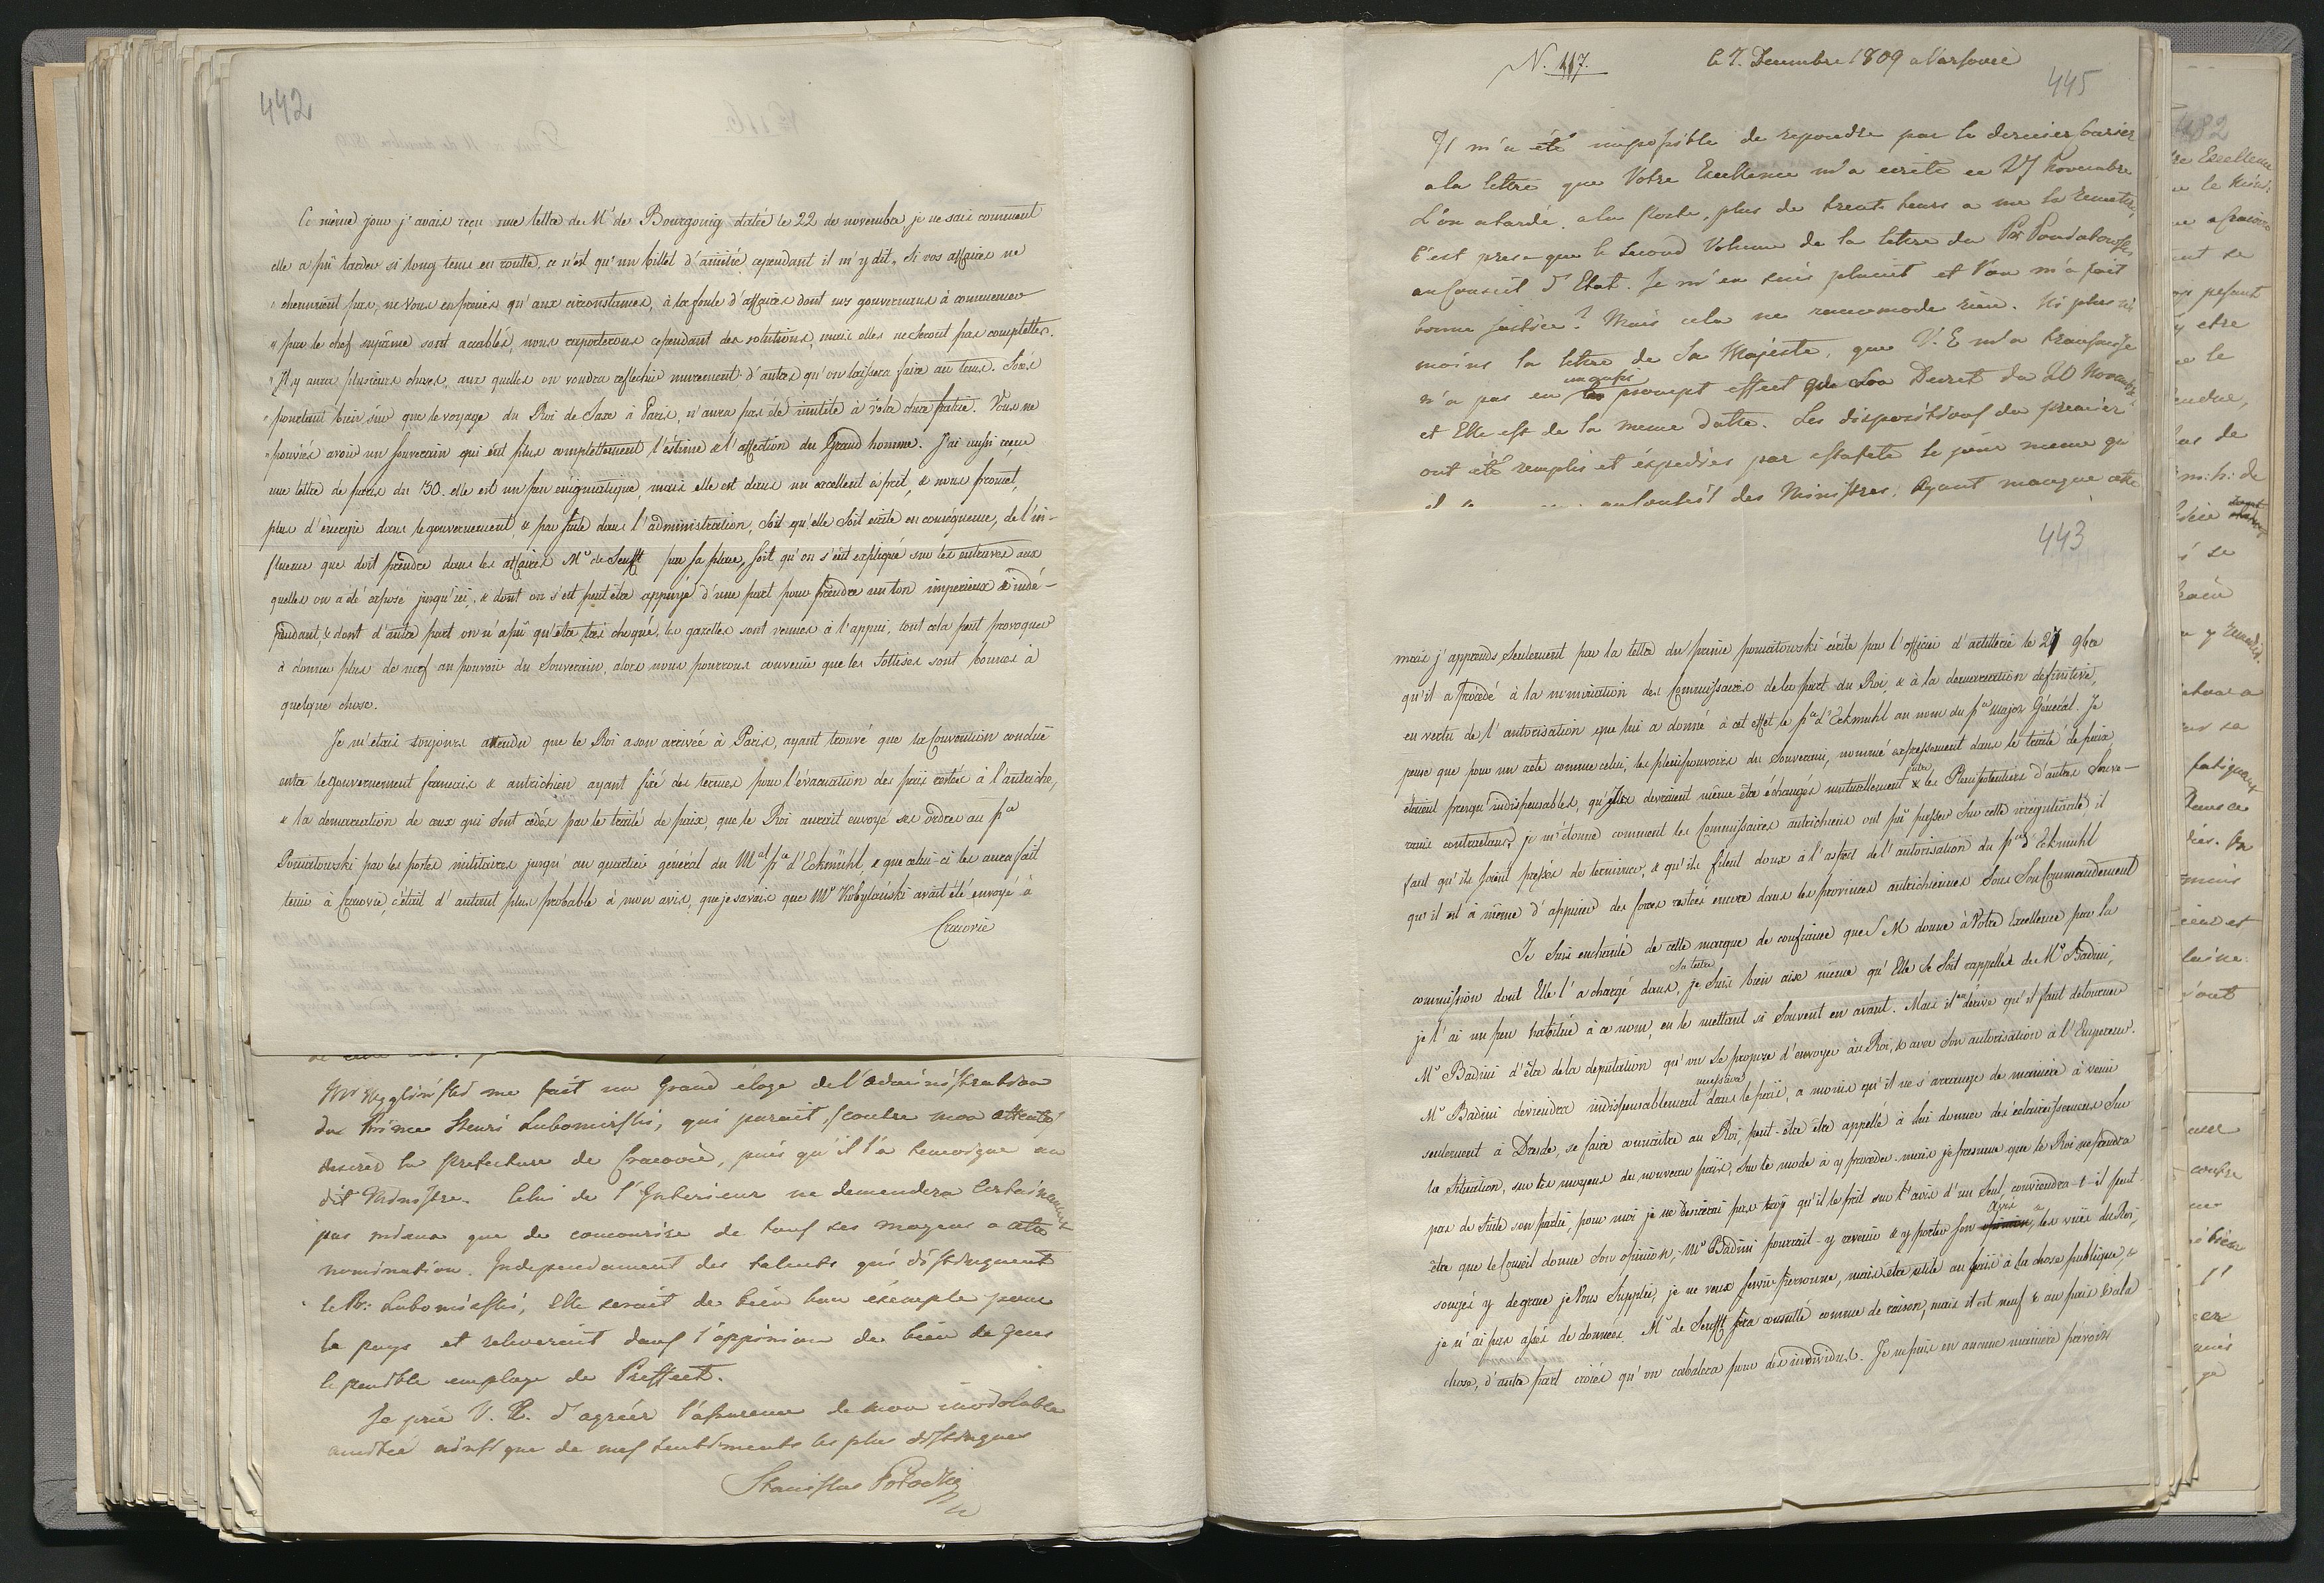 442
Ce même jour j'avais reçu une lettre de Mr de Bourgoing datée le 22 de novembre, je ne sais comment
elle a pû tarder si long tems en route, ce n'est qu'un billet d'amitié cependant il m'y dit, "Si vos affaires ne
" cheminent pas, ne vous en prenés qu'aux circonstances, à la foule d'affaires dont nos gouvernans à commencer
" par le chef suprême sont accablés, nous rapporterons cependant des solutions, mais elles ne seront pas complettes.
" Il y aura plusieurs choses, aux quelles on voudra reflechir murement d'autres qu'on laissera faire au tems. Soiés
" pourtant bien sûr que le voyage du Roi de Saxe à Paris, n'aura pas été inutile à votre chere patrie. Vous ne
" pouviés avoir un souverain qui eût plus complettement l'estime & l'affection du Grand homme. J'ai aussi reçu
une lettre de Paris du 30. elle est un peu enigmatique, mais elle est dans un excellent esprit, & nous promet,
plus d'énergie dans le gouvernement, & par suite dans l'administration, soit qu'elle soit ecrite en conséquence, de l'in-
fluence que doit prendre dans les affaires Mr de Senfft par sa place, soit qu'on s'est expliqué sur les entraves aux
quelles on a été exposé jusqu'ici, & dont on s'est peut être appuyé d'une part pour prendre un ton imperieux & indé-
pendant, & dont d'autre part on n'a pû qu'être très choqué, les gazettes sont venues à l'appui, tout cela peut provoquer
à donner plus de nerf au pouvoir du Souverain, alors nous pourrons convenir que les sottises sont bonnes à
quelque chose.
Je m'etais toujours attendu que le Roi a son arrivée à Paris, ayant trouvé que la Convention conclue
entre le gouvernement francais & autrichien ayant fixé des termes pour l'évacuation des païs restés à l'autriche,
& la demarcation de ceux qui sont cédés par le traité de paix, que le Roi aurait envoyé ses ordres au pce
Poniatowski par les postes militaires jusqu'au quartier général du Mal pce d'Eckmühl, & que celui-ci les aura fait
tenir à Cracovie, c'était d'autant plus probable à mon avis, que je savais que Mr Kobylański avait été envoyé à
Cracovie
Mr Węgliński me fait un grand éloge de l'administration
du Prince Henri Lubomirski, qui parait, contre mon attente
desirer la prefecture de Cracovie, puis qu'il l'a temoigné au
dit Ministre. Celui de l'Interieur ne demandera certainement
pas mieux que de concourire de tous ses moyens a cette
nomination. Independament des talents qui distinguent
le Pr: Lubomirski, Elle serait de bien bon éxemple pour
le pays et releverait dans l'oppinion de bien de gens
le penible employ de Preffect.
Je prie V. E. d'agréer l'assurence de mon inviolable
amitiée ainsi que de mes sentiments les plus distingués
Stanislas Potocki
N. 117.
le 7. Decembre 1809 a Varsovie
445
Il m'a été impossible de repondre par le dernier Curier
a la lettre que Votre Excellence m'a ecrite ce 27 Novembre
L'on a tardé, a la Poste, plus de trente heurs a me la remettre,
C'est presque le second Volume de la lettre du
au Conseil d'Etat. Je m'en suis plaint et l'on m'a fait
bonne justice? Mais cela ne raccomode rien. Ni plus ni
moins la lettre de Sa Majeste, que V. E m'a transmise
n'a pas eu un aussi prompt effect que Son Decret du 20 Novembre
et Elle est de la meme datte. Les dispositions du premier
ont été remplis et éxpediés par estafete le jour meme qu'
des Ministres, Ayant manqué cette
443
mais j'apprends seulement par la lettre du prince poniatowski écrite par l'officier d'artillerie le 27 9bre
qu'il a procédé à la nomination des Commissaires de la part du Roi, & à la demarcation definitive,
en vertu de l'autorisation que lui a donné à cet effet le pce d'Eckmuhl au nom du pce major Général. Je
pense que pour un acte comme celui, les pleinpouvoirs du Souverain, nommé expressement dans le traité de paix
étaient presqu'indispensables, qu'ils devraient même être échangés mutuellement entre les Plenipotentiers d'autres Souve-
rains contractans, je m'étonne comment les Commissaires autrichiens ont pû passer sur cette irrégularité, il
faut qu'ils soient pressés de terminer, & qu'ils filent doux à l'aspect de l'autorisation du pce d'Eckmuhl
qu'il est à même d'appuier des forces restées encore dans les provinces autrichiennes sous son Commandement
Je suis enchanté de cette marque de confiance que S M donne à Votre Excellence par la
commission dont Elle l'a chargé dans sa lettre, je suis bien aise même qu'Elle se soit rappellée de Mr Badini,
je l'ai un peu habitué à ce nom, en le mettant si souvent en avant. Mais il en dérive qu'il faut détourner
Mr Badini d'être de la deputation qu'on se propose d'envoyer au Roi, & avec son autorisation à l'Empereur.
Mr Badini deviendra indispensablement nécessaire dans le païs, a moins qu'il ne s'arrange de manière à venir
seulement à Dresde, se faire connaitre au Roi, peut-être être appellé à lui donner des éclaircissemens sur
la situation, sur les moyens du nouveau païs, sur le mode à y proceder, mais je presume que le Roi ne prendra
pas de suite son parti, pour moi je ne desirerai pas trop qu'il le prit sur l'avis d'un seul, conviendra-t-il peut-
être que le Conseil donne son opinion, Mr Badini pourrait-y revenir & y porter son avis, & les vües du Roi,
songés y degrace je Vous supplie, je ne veux servir personne, mais être utile au païs à la chose publique, &
je n'ai pas assés de données. Mr de Senfft sera consulté comme de raison, mais il est neuf & au païs & à la
chose, d'autre part croiés qu'on cabalera pour des individus. Je ne puis en aucune manière prévoir